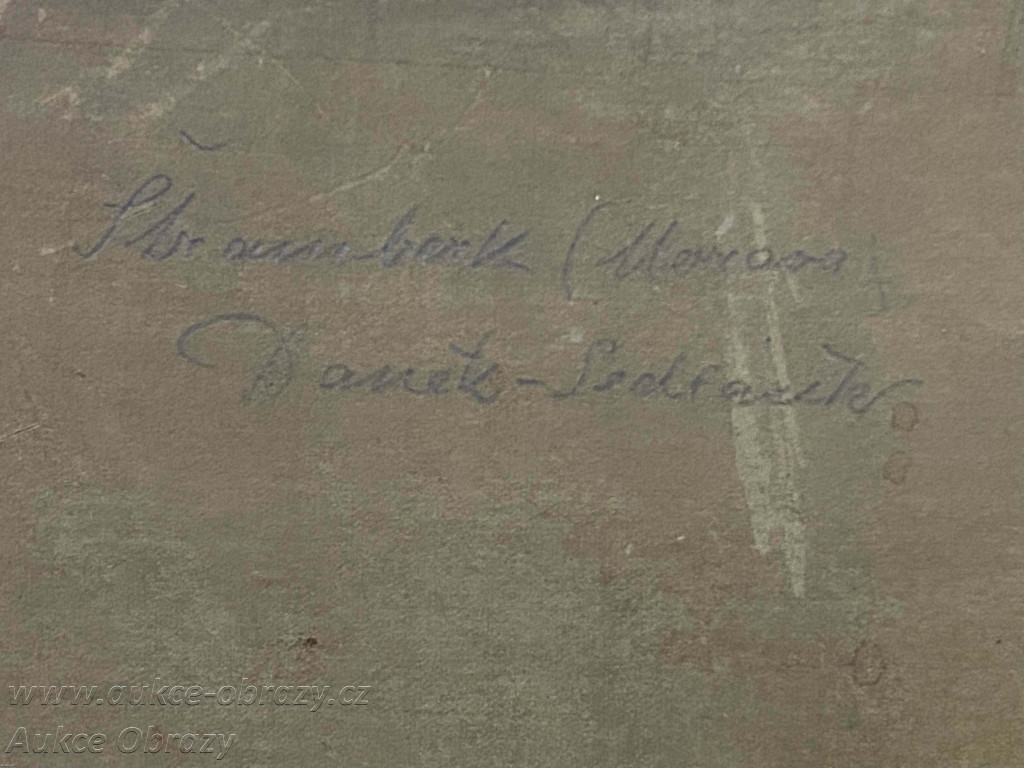 Štramberk (Morava
Daněk-Sedláček
www.aukce-obrazy.cz
Aukce Obrazy